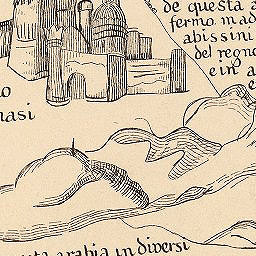 de questa a
fermo mad
abissini
del regno
e in a
masi
arabia in diversi